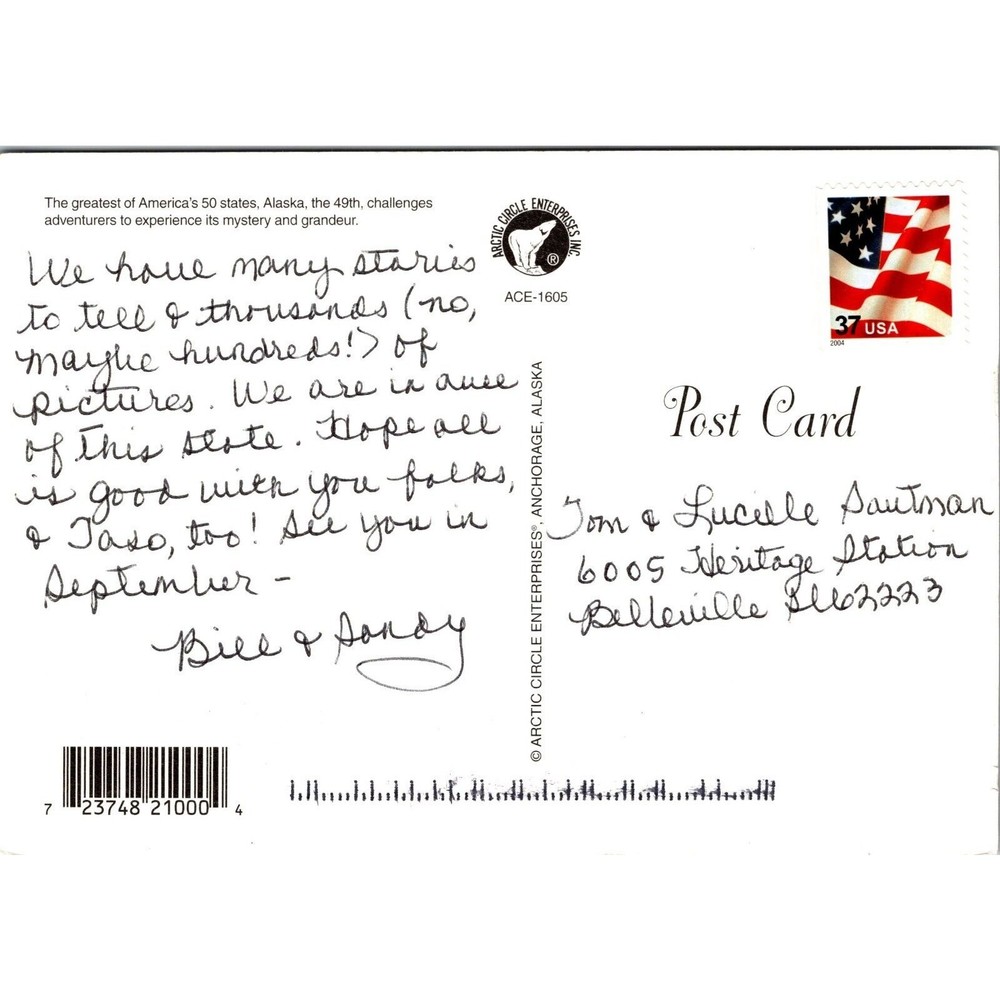 The greatest of America's 50 states, Alaska, the 49th, challenges
adventurers to experience its mystery and grandeur.
We have many stories
to tell & thousands (no,
maybe hundreds!) of
pictures. We are in awe
of this state. Hope all
is good with you folks,
& Taso, too! See you in
September –
Bill & Sandy
ARCTIC CIRCLE ENTERPRISES INC.
®
ACE-1605
© ARCTIC CIRCLE ENTERPRISES®, ANCHORAGE, ALASKA
37 USA
2004
Post Card
Tom & Lucille Sautman
6005 Heritage Station
Belleville Ill 62223
7 23748 21000 4